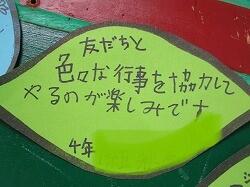 友だちと
色々な行事を協力して
やるのが楽しみです
4年